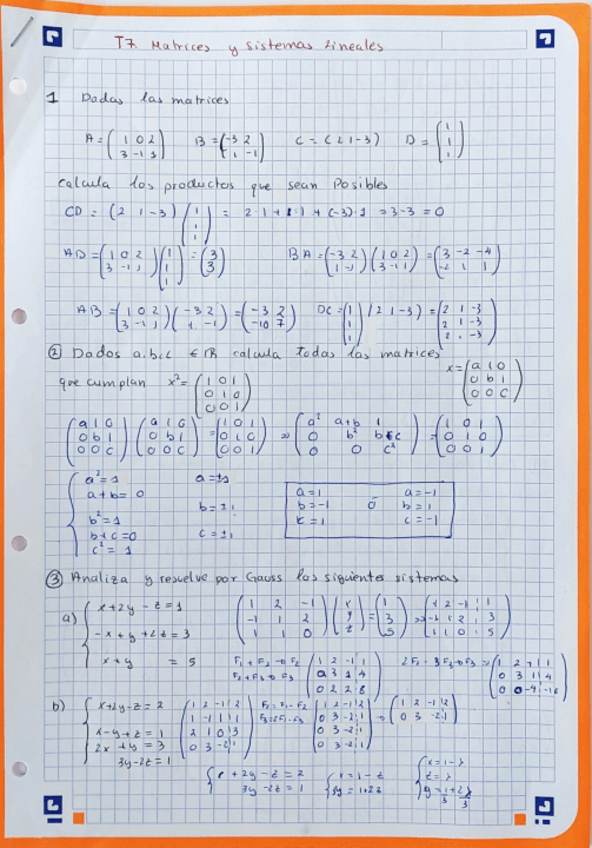 T7 Matrices y sistemas lineales
1 Dadas las matrices
A = ( 1 0 2 / 3 -1 1 ) B = ( -3 2 / 1 -1 ) C = ( 2 1 -3 ) D = ( 1 / 1 / 1 )
calcula los productos que sean Posibles
CD = ( 2 1 -3 ) ( 1 / 1 / 1 ) = 2·1 + 1·1 + (-3)·1 = 3-3 = 0
AD = ( 1 0 2 / 3 -1 1 ) ( 1 / 1 / 1 ) = ( 3 / 3 ) BA = ( -3 2 / 1 -1 ) ( 1 0 2 / 3 -1 1 ) = ( 3 -2 -4 / -2 1 1 )
AB = ( 1 0 2 / 3 -1 1 ) ( -3 2 / 1 -1 ) = ( -3 2 / -10 7 ) DC = ( 1 / 1 / 1 ) ( 2 1 -3 ) = ( 2 1 -3 / 2 1 -3 / 2 1 -3 )
② Dados a,b,c ∈ R calcula todas las matrices x = ( a 1 0 / 0 b 1 / 0 0 c )
que cumplan x² = ( 1 0 1 / 0 1 0 / 0 0 1 )
( a 1 0 / 0 b 1 / 0 0 c ) ( a 1 0 / 0 b 1 / 0 0 c ) = ( 1 0 1 / 0 1 0 / 0 0 1 ) => ( a² a+b 1 / 0 b² b+c / 0 0 c² ) = ( 1 0 1 / 0 1 0 / 0 0 1 )
a² = 1 a = ±1
a + b = 0
b² = 1 b = ±1
b + c = 0
c² = 1 c = ±1
a = 1 a = -1
b = -1 ó b = 1
c = 1 c = -1
③ Analiza y resuelve por Gauss los siguientes sistemas
a) x + 2y - z = 1
-x + y + 2z = 3
x + y = 5
( 1 2 -1 / -1 1 2 / 1 1 0 ) ( x / y / z ) = ( 1 / 3 / 5 ) => ( 1 2 -1 | 1 / -1 1 2 | 3 / 1 1 0 | 5 )
F1 + F2 → F2
F2 + F3 → F3
( 1 2 -1 | 1 / 0 3 1 | 4 / 0 2 2 | 8 )
2F2 - 3F3 → F3 => ( 1 2 -1 | 1 / 0 3 1 | 4 / 0 0 -4 | -16 )
b) x + 2y - z = 2
x - y + z = 1
2x + y = 3
3y - 2z = 1
( 1 2 -1 | 2 / 1 -1 1 | 1 / 2 1 0 | 3 / 0 3 -2 | 1 )
F2 = F1 - F2
F3 = 2F1 - F3
( 1 2 -1 | 2 / 0 3 -2 | 1 / 0 3 -2 | 1 / 0 3 -2 | 1 ) => ( 1 2 -1 | 2 / 0 3 -2 | 1 )
x + 2y - z = 2 x = 1 - z x = 1 - λ
3y - 2z = 1 3y = 1 + 2z z = λ